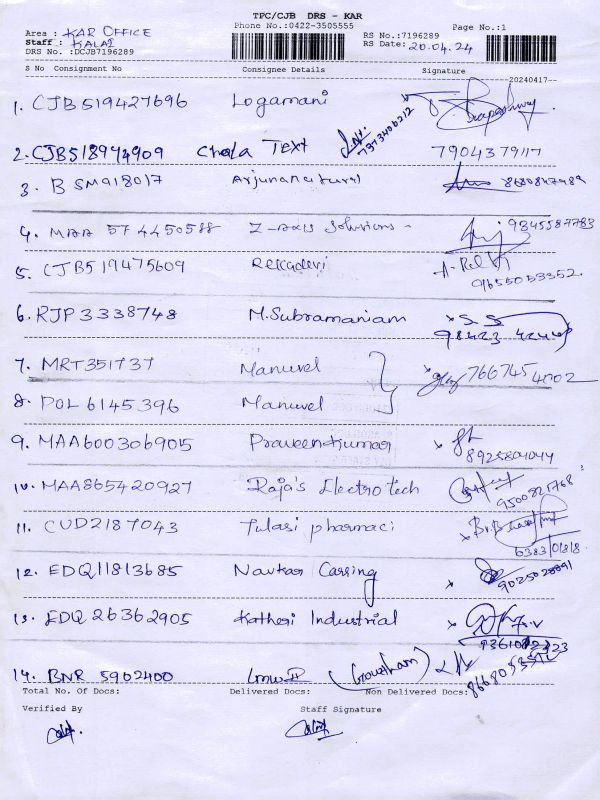 TPC/CJB DRS - KAR
Phone No.:0422-3505555
Page No.:1
Area : KAR OFFICE
Staff : KALAI
DRS No. :DCJB7196289
RS No.:7196289
RS Date: 20.04.24
S No Consignment No Consignee Details Signature
20240417--
1. CJB519427696 Logamani
2. CJB518974909 Chola Text 7373406212 7904379117
3. BSM918017 8680847989
4. MAA 574450588 Z-Axis Solutions - 9845587783
5. CJB519475609 Relkadevi 9655053352
6. RJP3338748 M.Subramaniam 98423
7. MRT351737 Manuvel 766745 4002
8. POL6145396 Manuvel
9. MAA600306905 Praveenkumar 8925804044
10. MAA865420927 Raja's Electro tech 9500825768
11. CUD2187043 Tulasi pharmaci 6383101818
12. EDQ11813685 Navkar Carsing 9025028891
13. EDQ26362905 Katheri Industrial
14. BNR 5902400 (Gowtham)
Total No. Of Docs: Delivered Docs: Non Delivered Docs:
Verified By Staff Signature